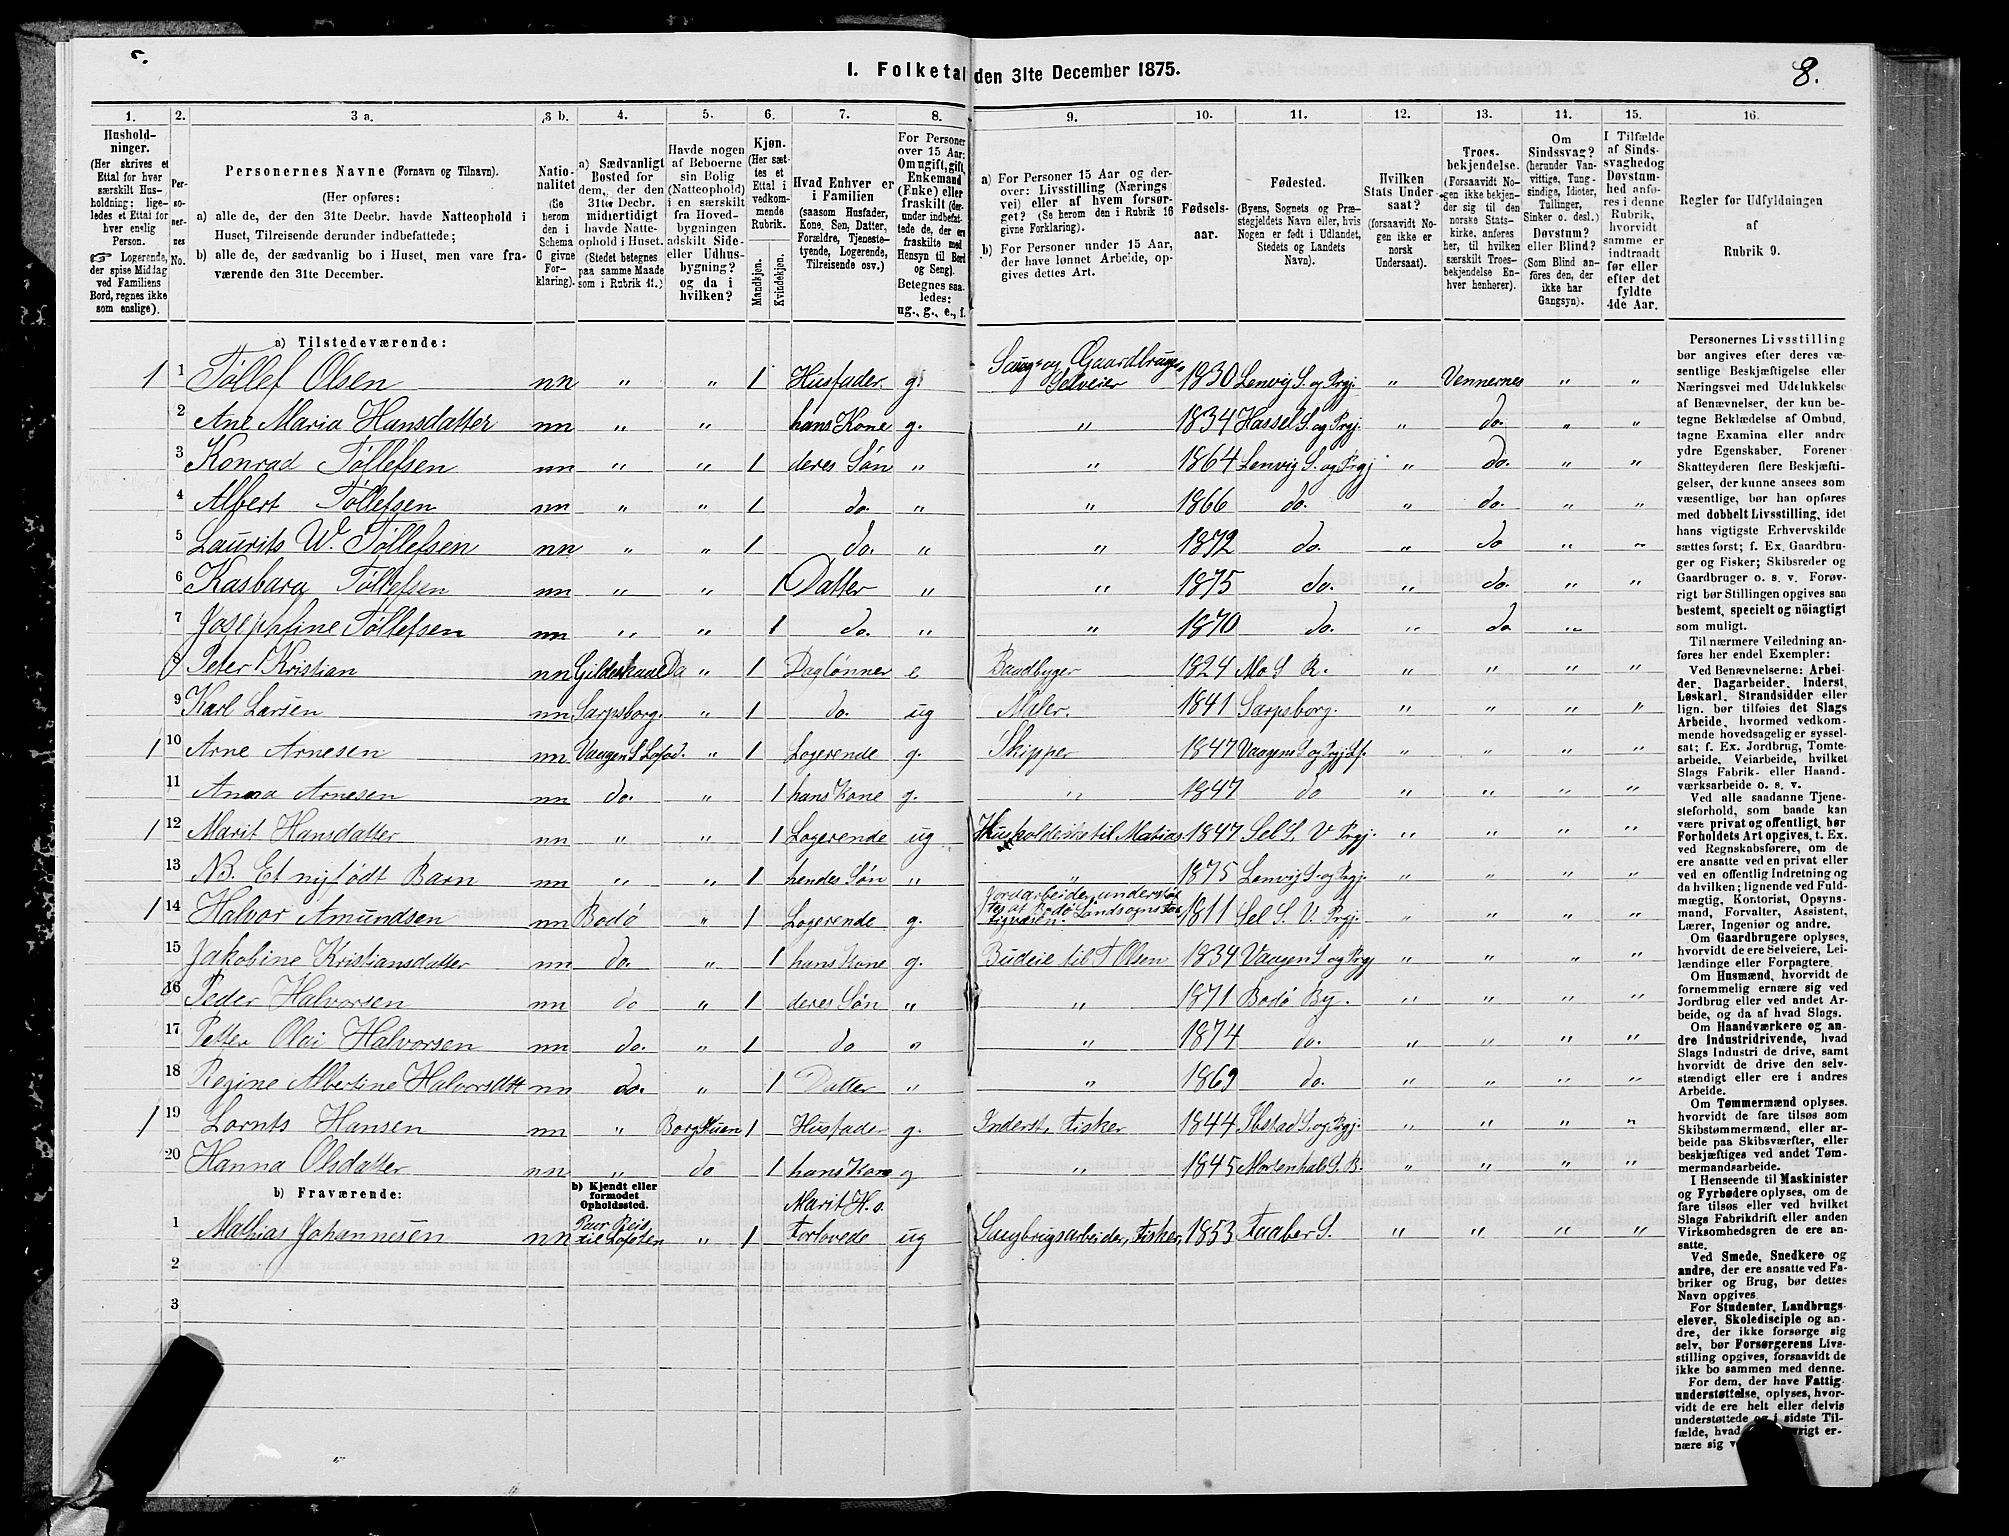 I. Folketal den 31te December 1875.
8.
1. 2. 3 a. 3 b. 4. 5. 6. 7. 8. 9. 10. 11. 12. 13. 14. 15. 16.
Hushold-
ninger.
(Her skrives et
Ettal for hver
særskilt Hus-
holdning; lige-
ledes et Ettal for
hver enslig
Person.
Logerende,
der spise Middag
ved Familiens
Bord, regnes ikke
som enslige).
Per-
so-
ner-
nes
No.
Personernes Navne (Fornavn og Tilnavn).
(Her opføres:
a) alle de, der den 31te Decbr. havde Natteophold i
Huset, Tilreisende derunder indbefattede;
b) alle de, der sædvanlig bo i Huset, men vare fra-
værende den 31te December.
Natio-
nalitet
(Se
herom
den i
Schema
C givne
For-
klaring).
a) Sædvanligt
Bosted for
dem, der den
31te Decbr.
midlertidigt
havde Natte-
ophold i Huset.
(Stedet betegnes
paa samme Maade
som i Rubrik 11.)
Havde nogen
af Beboerne
sin Bolig
(Natteophold)
i en særskilt
fra Hoved-
bygningen
adskilt Side-
eller Udhus-
bygning?
og da i
hvilken?
Kjøn.
(Her sæt-
tes et
Ettal i
vedkom-
mende
Rubrik.
Mandkjøn.
Kvindekjøn.
Hvad Enhver er
i Familien
(saasom Husfader,
Kone, Søn, Datter,
Forældre, Tjeneste-
tyende, Logerende,
Tilreisende osv.)
For Personer
over 15 Aar:
Om ugift, gift,
Enkemand
(Enke) eller
fraskilt (der-
under indbefat-
tede de, der ere
fraskilte med
Hensyn til Bord
og Seng).
Betegnes saa-
ledes:
ug., g., e., f.
a) For Personer 15 Aar og der-
over: Livsstilling (Nærings-
vei) eller af hvem forsør-
get? (Se herom den i Rubrik 16
givne Forklaring).
b) For Personer under 15 Aar,
der have lønnet Arbeide, op-
gives dettes Art.
Fødsels-
aar.
Fødested.
(Byens, Sognets og Præ-
stegjeldets Navn eller, hvis
Nogen er født i Udlandet,
Stedets og Landets
Navn).
Hvilken
Stats Under-
saat?
(forsaavidt No-
gen ikke er
norsk
Undersaat).
Troes-
bekjendelse.
(Forsaavidt No-
gen ikke bekjen-
der sig til den
norske Stats-
kirke, anføres
her, til hvilken
særskilt Troes-
bekjendelse En-
hver henhører).
Om
Sindssvag?
(herunder Van-
vittige, Tung-
sindige, Idioter,
Tullinger,
Sinker o. desl.)
Døvstum?
eller Blind?
(Som Blind an-
føres den, der
ikke har
Gangsyn).
I Tilfælde
af Sinds-
svaghed og
Døvstum-
hed anfø-
res i denne
Rubrik,
hvorvidt
samme er
indtraadt
før eller
efter det
fyldte
4de Aar.
Regler for Udfyldningen
af
Rubrik 9.
a) Tilstedeværende:
1 1 Tøllef Olsen nn " " 1 Husfader g. Saug- og Gaardbruger Selveier 1830 Lenvig S. og Prgj. " Vennernes " "
2 Ane Maria Hansdatter nn " " 1 hans Kone g. " 1834 Hassel S. og Prgj. " do. " "
3 Konrad Tøllefsen nn " " 1 deres Søn " " 1864 Lenvig S. og Prgj " do. " "
4 Albert Tøllefsen nn " " 1 do. " " 1866 do. " do. " "
5 Laurits W. Tøllefsen nn " " 1 do. " " 1872 do. " do " "
6 Kasbara Tøllefsen nn " " 1 Datter " " 1875 do. " do. " "
7 Josephine Tøllefsen nn " " 1 do. " " 1870 do. " do "
8 Peter Kristian nn Gildeskaae " 1 Daglønner e Baadbyger 1824 Mo S. R. " " " "
9 Karl Larsen nn Sarpsborg. " 1 do. ug Maler. 1841 Sarpsborg. " " " "
1 10 Arne Arnesen nn Vaagen S. Lofod. " 1 Logerende g. Skipper 1847 Vaagens S og Prgj. Lf. " " " "
11 Anna Arnesen nn do. " 1 hans Kone g. " 1847 do " " " "
1 12 Marit Hansdatter nn " " 1 Logerende ug Husholderske til Matias 1847 Sel S. V Prgj. " " " "
13 NB. Et nyfødt Barn nn " " 1 hendes Søn " " 1875 Lenvig S. og Prgj. " " " "
1 14 Halvor Amundsen nn Bodø " 1 Logerende g. Jordarbeider, understøt tes af Bodø Landsogns Fat tigvæsen. 1811 Sel S. V. Prgj. " " " "
15 Jakobine Kristiansdatter nn do. " 1 hans Kone g. Budeie til T Olsen 1834 Vaagen S og Prgj " " " "
16 Peder Halvorsen nn do " 1 deres Søn " " 1871 Bodø By. " " " "
17 Petter Olai Halvorsen nn do. " 1 do " " 1874 do. " " " "
18 Regine Albertine Halvorsdtt nn do. " 1 Datter " " 1869 do. " " " "
1 19 Lornts Hansen nn " Borgstuen 1 Husfader g. Inderst, Fisker 1844 Ibstad S. og Prgj. " " " "
20 Hanna Olsdatter nn " do 1 hans Kone g " 1845 Mortenhals S. B. " " " "
b) Fraværende:
b) Kjendt eller
formodet
Opholdssted.
1 Mathias Johannesen nn Paa Reis til Lofoten " 1 Marit H. s. Forlovede ug Saugbrugsarbeider, Fisker, 1853 Faaber S. " " " "
2
3
Personernes Livsstilling
bør angives efter deres væ-
sentlige Beskjæftigelse eller
Næringsvei med Udelukkelse
af Benævnelser, der kun be-
tegne Beklædelse af Ombud,
tagne Examina eller andre
ydre Egenskaber. Forener
Skatteyderen flere Beskjæfti-
gelser, der kunne ansees som
væsentlige, bør han opføres
med dobbelt Livsstilling, idet
hans vigtigste Erhvervskilde
sættes først; f. Ex. Gaardbru-
ger og Fisker; Skibsreder og
Gaardbruger o. s. v. Forøv-
rigt bør Stillingen opgives saa
bestemt, specielt og nöiagtigt
som muligt.
Til nærmere Veiledning an-
føres her endel Exempler:
Ved Benævnelserne: Arbei-
der, Dagarbeider, Inderst,
Løskarl, Strandsidder eller
lign. bør tilføies det Slags
Arbeide, hvormed vedkom-
mende hovedsagelig er syssel-
sat; f. Ex. Jordbrug, Tomte-
arbeide, Veiarbeide, hvilket
Slags Fabrik- eller Haand-
værksarbeide o. s. v.
Ved alle saadanne Tjene-
steforhold, som baade kan
være privat og offentligt, bør
Forholdets Art opgives, t. Ex.
ved Regnskabsførere, om de
ere ansatte ved en privat eller
ved en offentlig Indretning og
da hvilken; lignende ved Fuld-
mægtig, Kontorist, Opsyns-
mand, Forvalter, Assistent,
Lærer, Ingeniør og andre.
Om Gaardbrugere oplyses,
hvorvidt de ere Selveiere, Lei-
lændinge eller Forpagtere.
Om Husmænd, hvorvidt de
fornemmelig ernære sig ved
Jordbrug eller ved andet Ar-
beide, og da af hvad Slags.
Om Haandværkere og an-
dre Industridrivende, hvad
Slags Industri de drive, samt
hvorvidt de drive den selv-
stændigt eller ere i andres
Arbeide.
Om Tømmermænd oplyses,
hvorvidt de fare tilsøs som
Skibstømmermænd, eller ar-
beide paa Skibsværfter, eller
beskjæftiges ved andet Tøm-
mermandsarbeide.
I Henseende til Maskinister
og Fyrbødere oplyses, om de
fare tilsøs eller ved hvilket
Slags Fabrikdrift eller anden
Virksomhedsgren de ere an-
satte.
Ved Smede, Snedkere og
andre, der ere ansatte ved Fa-
briker og Brug, bør dettes
Navn opgives.
For Studenter, Landbrugs-
elever, Skoledisciple og an-
dre, der ikke forsørge sig
selv, bør Forsørgerens Livs-
stilling opgives, forsaavidt de
ikke bo sammen med denne.
For dem, der have Fattig-
understøttelse, oplyses, hvor-
vidt de ere helt eller delvis
understøttede og i sidste Til-
fælde, hvad